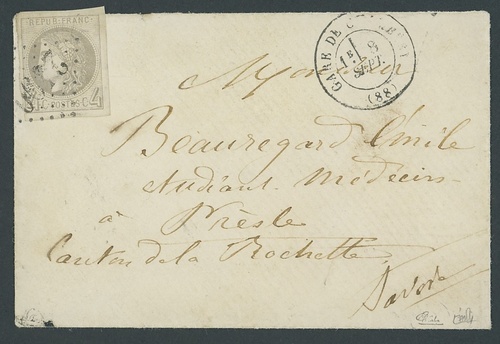 REPUB. FRANC.
4 POSTES C. 4
GARE DE
1E
8
SEPT.
(88)
Monsieur
Beauregard Émile
étudiant Médecin
à Presle
Canton de la Rochette
Savoie